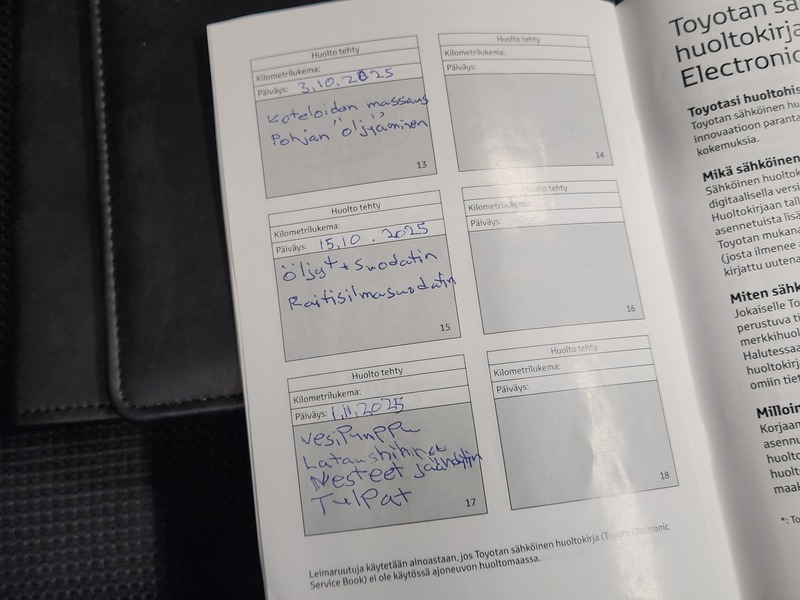 Huolto tehty
Kilometrilukema:
Päiväys: 3.10.2025
Koteloidan massaus
Pohjan "öljyäminen
13
Huolto tehty
Kilometrilukema:
Päiväys:
14
Huolto tehty
Kilometrilukema:
Päiväys: 15.10.2025
Öljyt + Suodatin
Raitisilmasuodatin
15
Huolto tehty
Kilometrilukema:
Päiväys:
16
Huolto tehty
Kilometrilukema:
Päiväys: 1.11.2025
Vesipumppu
Lataushihnat
Nesteet
Tulpat
17
Huolto tehty
Kilometrilukema:
Päiväys:
18
Leimaruutuja käytetään ainoastaan, jos Toyotan sähköinen huoltokirja (Toyota Electronic
Service Book) ei ole käytössä ajoneuvon huoltomaassa.
Toyotan
huoltokirja
Electronic
Toyotasi
Toyotan sähköinen
innovaatioon
kokemuksia.
Mikä sähköinen
Sähköinen
digitaalisella
Huoltokirjaan
asennetuista
Toyotan
(josta ilmenee
kirjattu
Miten
Jokaiselle
perustuva
Halutessa
omiin
Korjaam